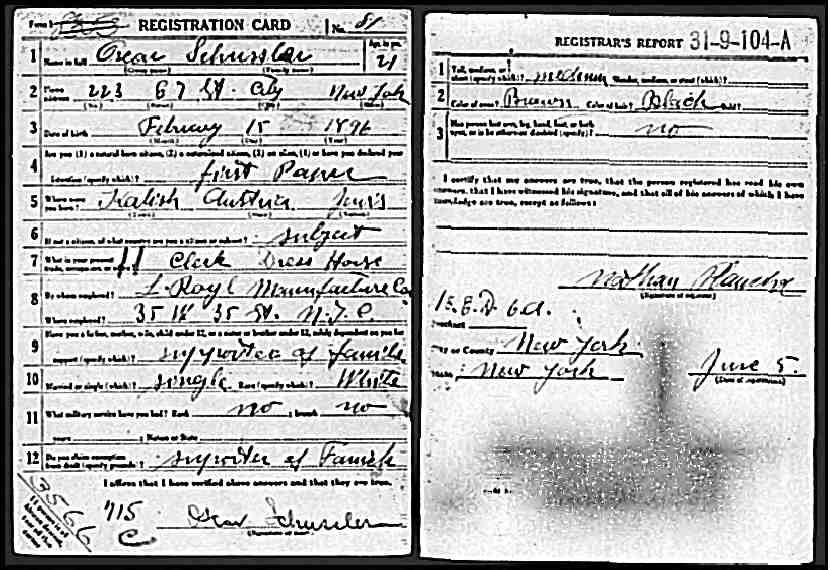 Form 1 REGISTRATION CARD No. 81
1 Name in full Oscar Schussler Age, in yrs. 21
(Given name) (Family name)
2 Home address 223 67 St. City New York
(No.) (Street) (City) (State)
3 Date of birth February 15 1896
(Month) (Day) (Year)
4 Are you (1) a natural born citizen, (2) a naturalized citizen, (3) an alien, (4) or have you declared your
intention (specify which)? first Paper
5 Where were you born? Kalish Austria
(Town) (State) (Nation)
6 If not a citizen, of what country are you a citizen or subject? subject
7 What is your present trade, occupation, or office? Clerk Dress House
8 By whom employed? L Royl Manufacture Co
Where employed? 35 W 35 St. N.Y.C.
9 Have you a father, mother, wife, child under 12, or a sister or brother under 12, solely dependent on you for
support (specify which)? supporter of familie
10 Married or single (which)? single Race (specify which)? White
11 What military service have you had? Rank no ; branch no
years ; Nation or State
12 Do you claim exemption from draft (specify grounds)? supporter of Familie
I affirm that I have verified above answers and that they are true.
3566
715
C Oscar Schussler
(Signature or mark)
REGISTRAR'S REPORT 31-9-104-A
1 Tall, medium, or short (specify which)? medium Slender, medium, or stout (which)?
2 Color of eyes? Brown Color of hair? Black Bald?
3 Has person lost arm, leg, hand, foot, or both
eyes, or is he otherwise disabled (specify)? no
I certify that my answers are true, that the person registered has read his own
answers, that I have witnessed his signature, and that all of his answers of which I have
knowledge are true, except as follows:
Nathan
(Signature of registrar)
15 E.D. 6 A.
Precinct
City or County New York
State New York June 5.
(Date of registration)